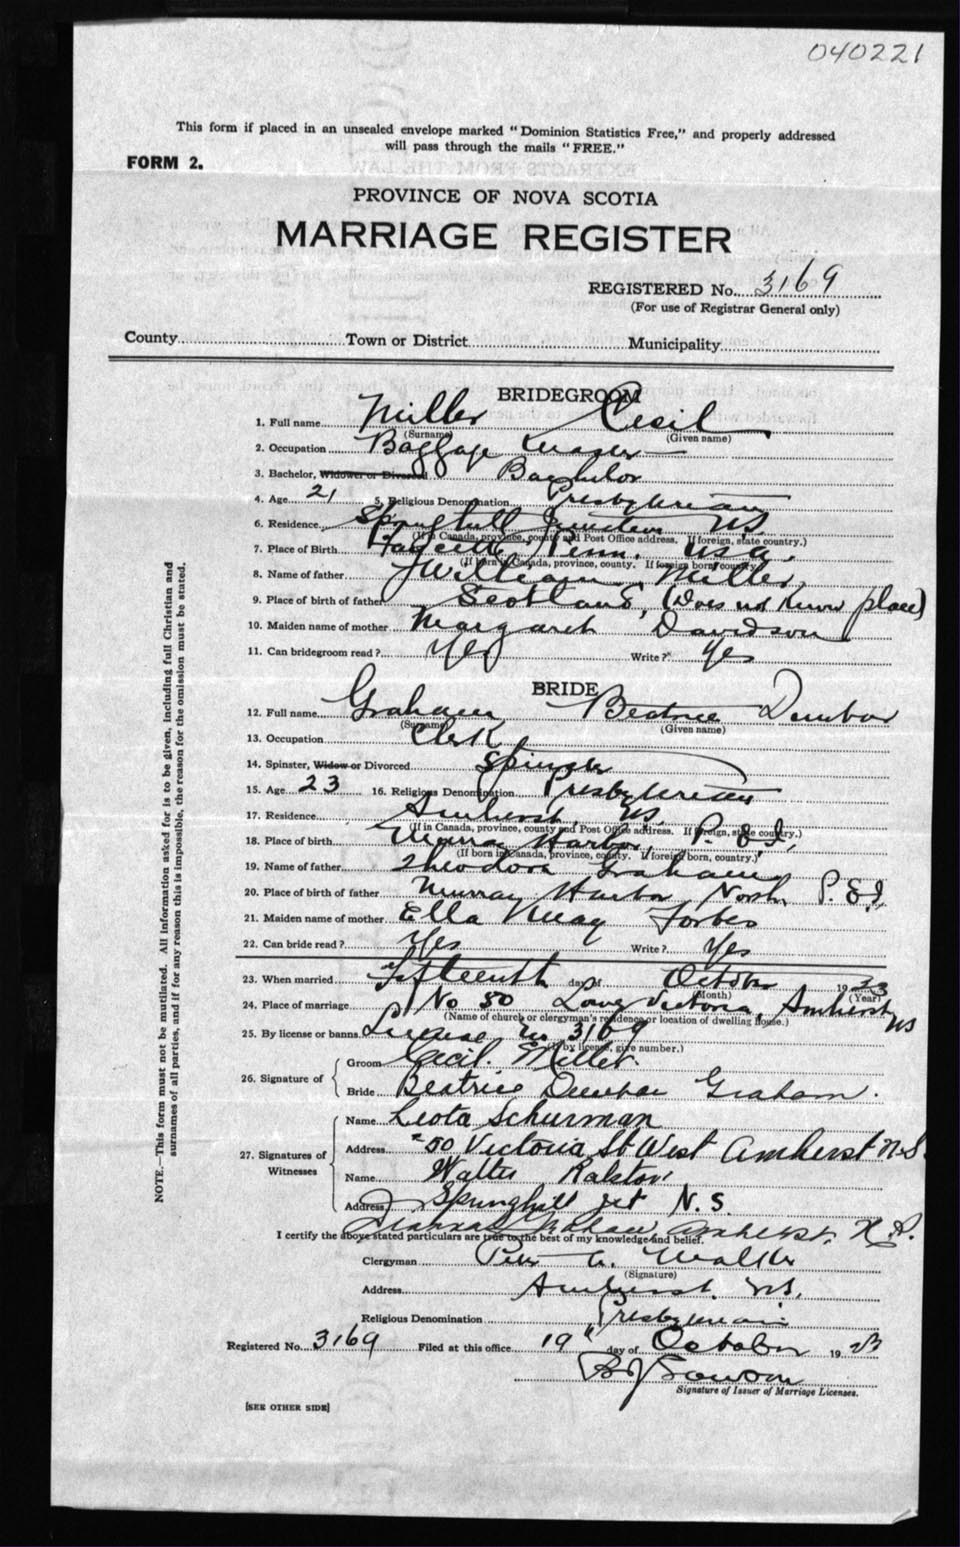 040221
This form if placed in an unsealed envelope marked "Dominion Statistics Free," and properly addressed
will pass through the mails "FREE."
FORM 2.
PROVINCE OF NOVA SCOTIA
MARRIAGE REGISTER
REGISTERED No. 3169
(For use of Registrar General only)
County Town or District Municipality
BRIDEGROOM
1. Full name Miller Cecil
(Surname) (Given name)
2. Occupation Baggage
3. Bachelor, Widower or Divorced Bachelor
4. Age 21 5. Religious Denomination Presbyterian
6. Residence Springhill Junction NS.
(If in Canada, province, county and Post Office address. If foreign, state country.)
7. Place of Birth Fayette Penn. USA.
(If born in Canada, province, county. If foreign born, country.)
8. Name of father William Miller
9. Place of birth of father Scotland, (Does not know place)
10. Maiden name of mother Margaret Davidson
11. Can bridegroom read? Yes Write? Yes
BRIDE
12. Full name Graham Beatrice Dunbar
(Surname) (Given name)
13. Occupation Clerk
14. Spinster, Widow or Divorced Spinster
15. Age 23 16. Religious Denomination Presbyterian
17. Residence Amherst, NS.
(If in Canada, province, county and Post Office address. If foreign, state country.)
18. Place of birth Murray Harbor, P. E. I.,
(If born in Canada, province, county. If foreign born, country.)
19. Name of father Theodore Graham
20. Place of birth of father Murray Harbor North P. E. I,
21. Maiden name of mother Ella May Forbes
22. Can bride read? Yes Write? Yes
23. When married Fifteenth day of October 1923
(Month) (Year)
24. Place of marriage No 50 Victoria, Amherst NS
(Name of church or clergyman's residence or location of dwelling house.)
25. By license or banns License No 3169
(If by license, give number.)
26. Signature of Groom Cecil Miller.
Bride Beatrice Dunbar Graham.
27. Signatures of Witnesses
Name Leota Schurman
Address 50 Victoria St West Amherst N.S.
Name Walter Ralston
Address Springhill Jct N. S.
Graham Amherst. N. S.
I certify the above stated particulars are true to the best of my knowledge and belief.
Clergyman Peter A. Walker
(Signature)
Address Amherst. NS.
Religious Denomination Presbyterian
Registered No. 3169 Filed at this office 19" day of October 1923
Signature of Issuer of Marriage Licenses.
[SEE OTHER SIDE]
NOTE.—This form must not be mutilated. All information asked for is to be given, including full Christian and
surnames of all parties, and if for any reason this is impossible, the reason for the omission must be stated.